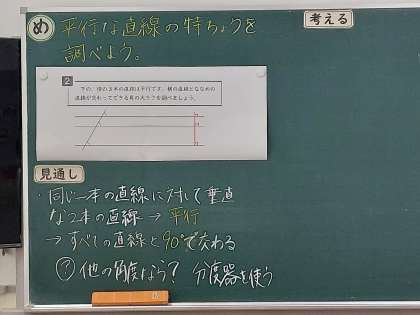 め 平行な直線の特ちょうを
調べよう。
考える
2
下の、横の3本の直線は平行です。横の直線とななめの
直線が交わってできる角の大きさを調べましょう。
見通し
・同じ一本の直線に対して垂直
な2本の直線→平行
→すべての直線と90°で交わる
? 他の角度なら? 分度器を使う